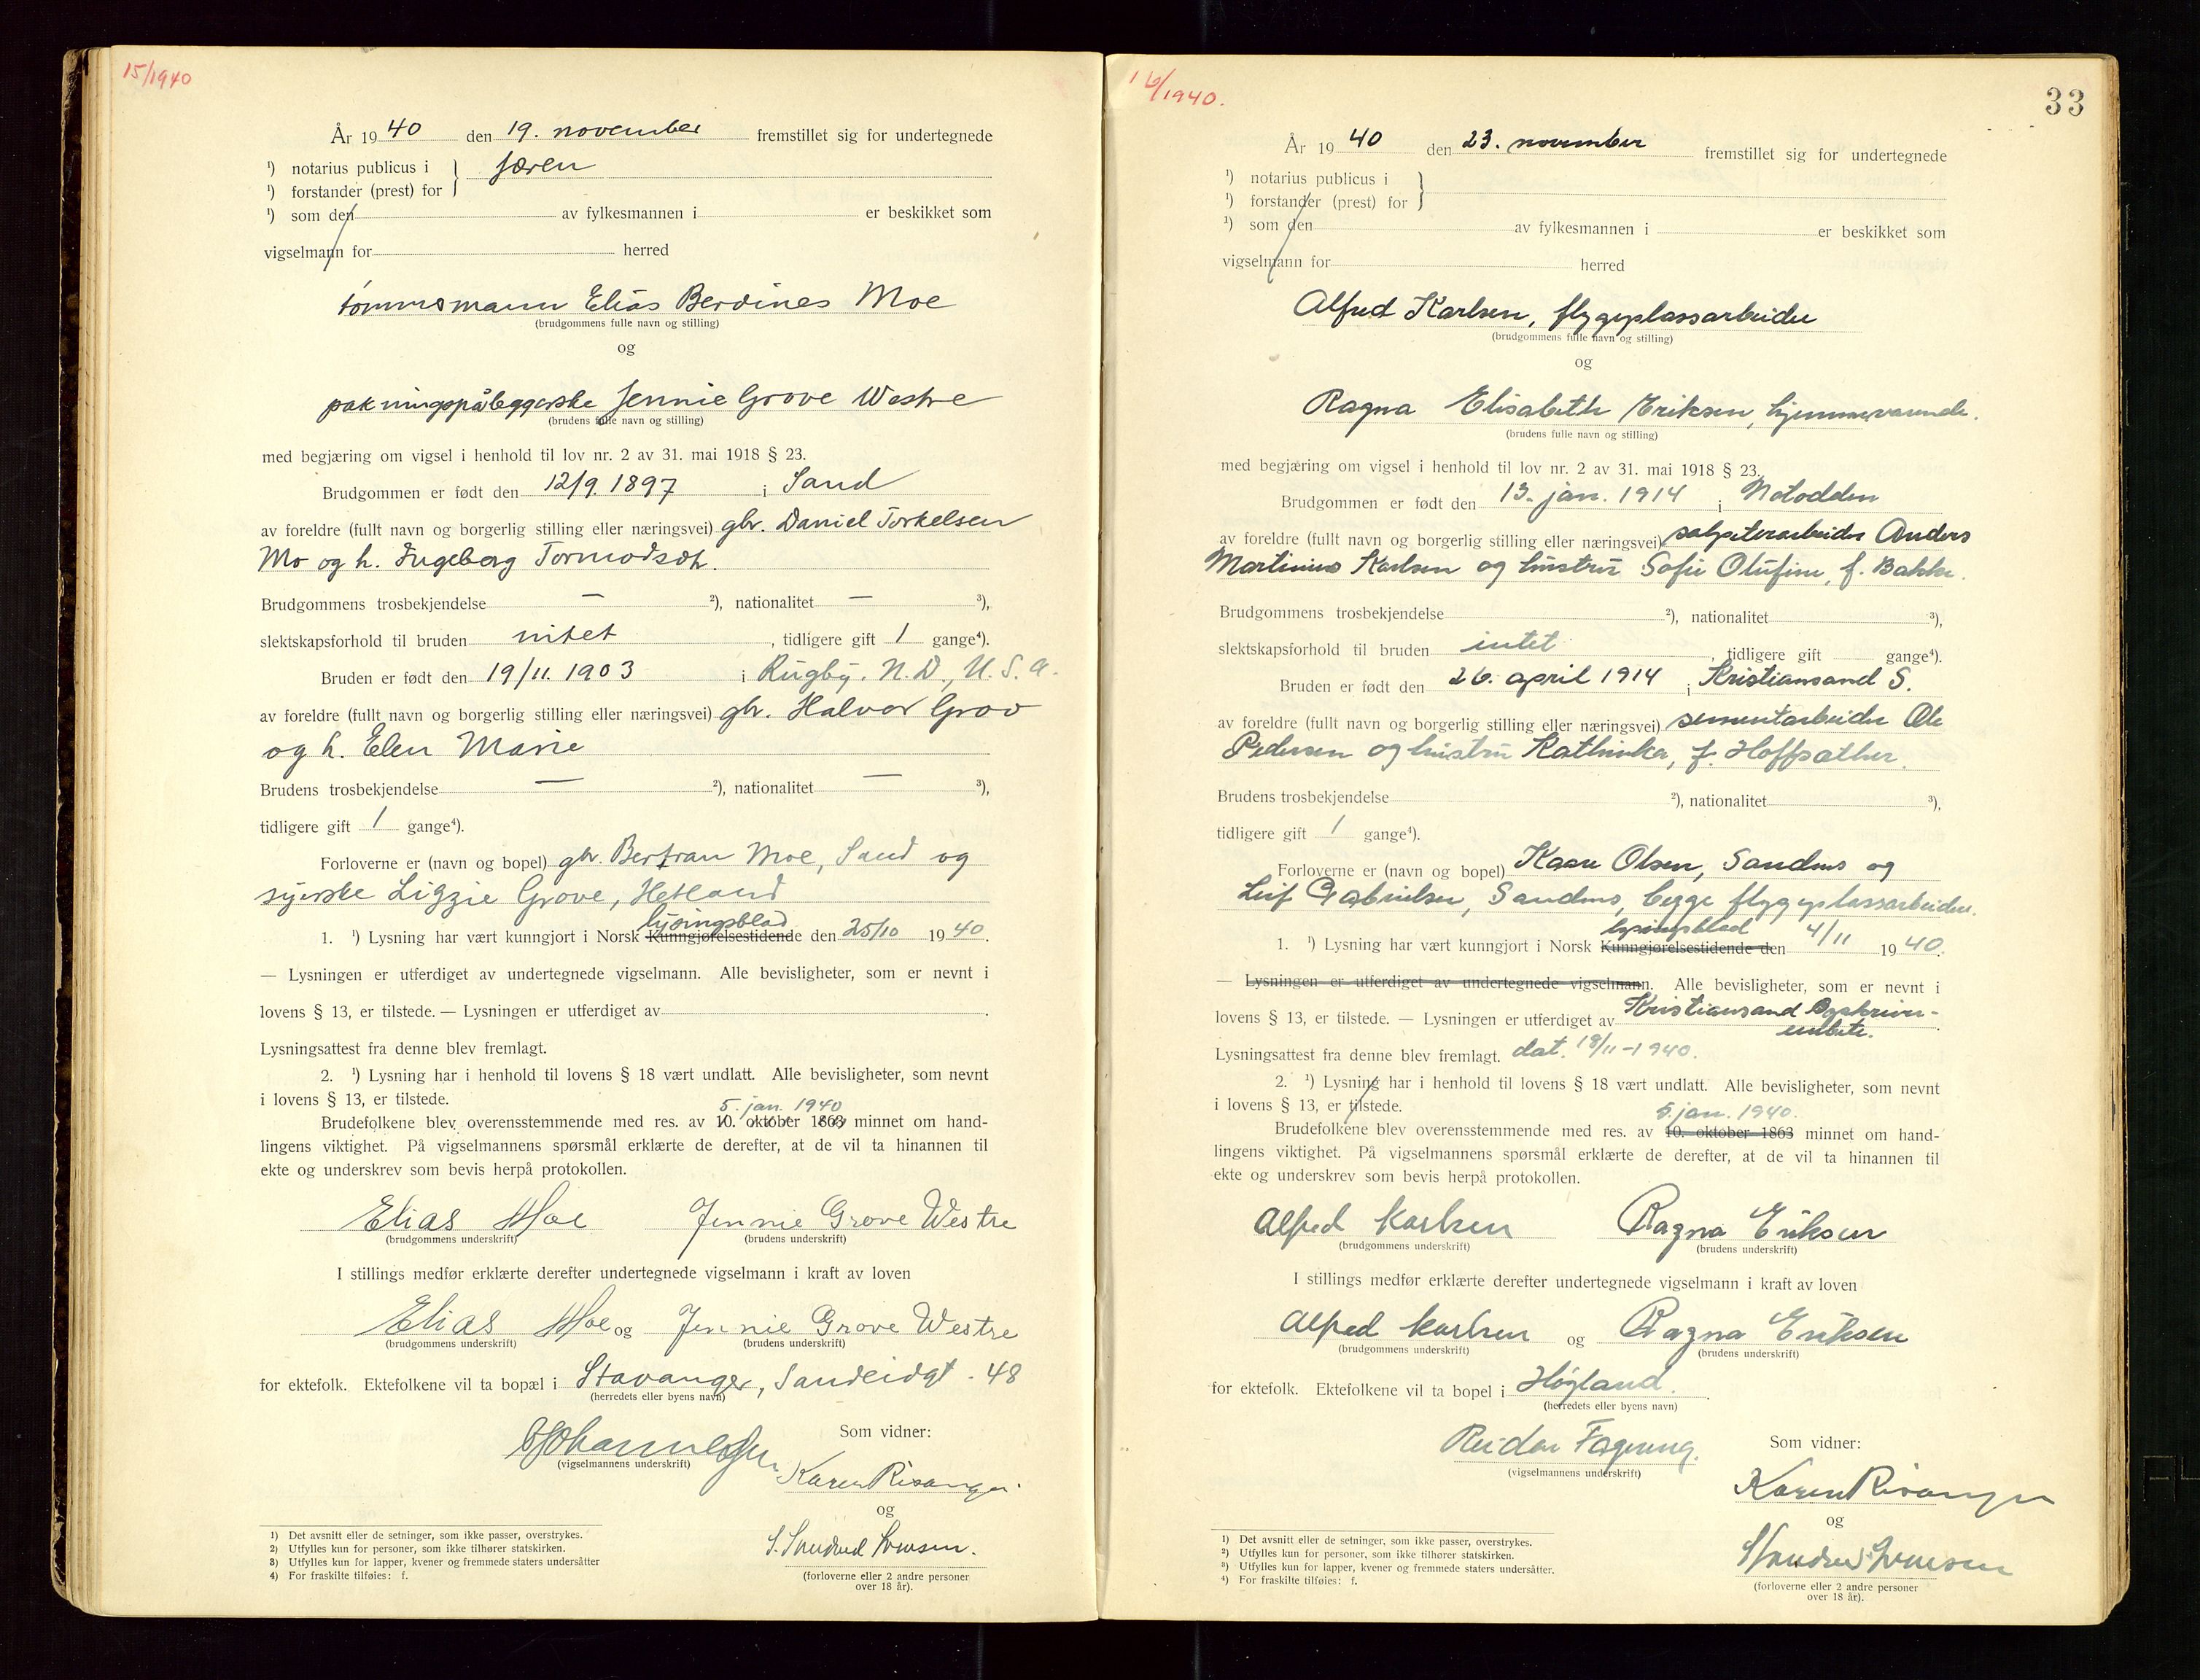 15/1940
År 1940 den 19. november fremstillet sig for undertegnede
¹) notarius publicus i } Jæren
¹) forstander (prest) for
¹) som den av fylkesmannen i er beskikket som
vigselmann for herred
tømmermann Elias Berdines Moe
(brudgommens fulle navn og stilling)
og
pakningspåleggerske Jennie Grove Westre
(brudens fulle navn og stilling)
med begjæring om vigsel i henhold til lov nr. 2 av 31. mai 1918 § 23.
Brudgommen er født den 12/9. 1897 i Sand
av foreldre (fullt navn og borgerlig stilling eller næringsvei) gbr. Daniel Torkelsen
Mo og h. Ingeborg Tormodsdtr.
Brudgommens trosbekjendelse — ²), nationalitet — ³),
slektskapsforhold til bruden intet, tidligere gift 1 gange⁴).
Bruden er født den 19/11. 1903 i Rugby. N.D., U.S.A.
av foreldre (fullt navn og borgerlig stilling eller næringsvei) gbr. Halvor Grov
og h. Elen Marie
Brudens trosbekjendelse — ²), nationalitet — ³),
tidligere gift 1 gange⁴).
Forloverne er (navn og bopel) gbr. Bertran Moe, Sand og
syerske Lizzie Grove, Hetland
lysingsblad
1. ¹) Lysning har vært kunngjort i Norsk Kunngjørelsestidende den 25/10 1940.
— Lysningen er utferdiget av undertegnede vigselmann. Alle bevisligheter, som er nevnt i
lovens § 13, er tilstede. — Lysningen er utferdiget av .
Lysningsattest fra denne blev fremlagt.
2. ¹) Lysning har i henhold til lovens § 18 vært undlatt. Alle bevisligheter, som nevnt
i lovens § 13, er tilstede.
5. jan. 1940
Brudefolkene blev overensstemmende med res. av 10. oktober 1863 minnet om hand-
lingens viktighet. På vigselmannens spørsmål erklærte de derefter, at de vil ta hinannen til
ekte og underskrev som bevis herpå protokollen.
Elias Moe Jennie Grove Westre
(brudgommens underskrift) (brudens underskrift)
I stillings medfør erklærte derefter undertegnede vigselmann i kraft av loven
Elias Moe og Jennie Grove Westre
(brudgommens underskrift) (brudens underskrift)
for ektefolk. Ektefolkene vil ta bopæl i Stavanger, Sandeidgt. 48
(herredets eller byens navn)
Som vidner:
(vigselmannens underskrift)
Karen Risanger
og
S. Sandved
(forloverne eller 2 andre personer
over 18 år).
1) Det avsnitt eller de setninger, som ikke passer, overstrykes.
2) Utfylles kun for personer, som ikke tilhører statskirken.
3) Utfylles kun for lapper, kvener og fremmede staters undersåtter
4) For fraskilte tilføies: f.
16/1940.
33
År 1940 den 23. november fremstillet sig for undertegnede
¹) notarius publicus i }
¹) forstander (prest) for
¹) som den av fylkesmannen i er beskikket som
vigselmann for herred
Alfred Karlsen, flygeplassarbeider
(brudgommens fulle navn og stilling)
og
Ragna Elisabeth Eriksen, hjemmeværende.
(brudens fulle navn og stilling)
med begjæring om vigsel i henhold til lov nr. 2 av 31. mai 1918 § 23.
Brudgommen er født den 13. jan. 1914 i Notodden
av foreldre (fullt navn og borgerlig stilling eller næringsvei) salpeterarbeider Anders
Martinius Karlsen og hustru Sofie Olufine, f. Bakke.
Brudgommens trosbekjendelse ²), nationalitet ³),
slektskapsforhold til bruden intet, tidligere gift gange⁴).
Bruden er født den 26. april 1914 i Kristiansand S.
av foreldre (fullt navn og borgerlig stilling eller næringsvei) sementarbeider Ole
Pedersen og hustru Kathinka, f. Hoffsæther.
Brudens trosbekjendelse ²), nationalitet ³),
tidligere gift 1 gange⁴).
Forloverne er (navn og bopel) Kaare Olsen, Sandnes og
Leif Gabrielsen, Sandnes, begge flygeplassarbeidere.
lysingsblad
1. ¹) Lysning har vært kunngjort i Norsk Kunngjørelsestidende den 4/11 1940.
— Lysningen er utferdiget av undertegnede vigselmann. Alle bevisligheter, som er nevnt i
lovens § 13, er tilstede. — Lysningen er utferdiget av Kristiansand Byskriver-
embete.
Lysningsattest fra denne blev fremlagt. dat. 18/11-1940.
2. ¹) Lysning har i henhold til lovens § 18 vært undlatt. Alle bevisligheter, som nevnt
i lovens § 13, er tilstede.
5. jan. 1940.
Brudefolkene blev overensstemmende med res. av 10. oktober 1863 minnet om hand-
lingens viktighet. På vigselmannens spørsmål erklærte de derefter, at de vil ta hinannen til
ekte og underskrev som bevis herpå protokollen.
Alfred Karlsen Ragna Eriksen
(brudgommens underskrift) (brudens underskrift)
I stillings medfør erklærte derefter undertegnede vigselmann i kraft av loven
Alfred Karlsen og Ragna Eriksen
(brudgommens underskrift) (brudens underskrift)
for ektefolk. Ektefolkene vil ta bopel i Høgland.
(herredets eller byens navn)
Reidar Som vidner:
(vigselmannens underskrift)
Karen Risanger
og
(forloverne eller 2 andre personer
over 18 år).
¹) Det avsnitt eller de setninger, som ikke passer, overstrykes.
²) Utfylles kun for personer, som ikke tilhører statskirken.
³) Utfylles kun for lapper, kvener og fremmede staters undersåtter.
⁴) For fraskilte tilføies: f.